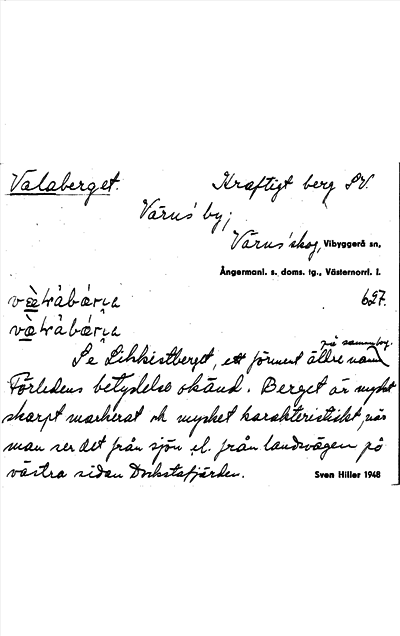 Valaberget. Kraftigt berg SV.
Värns' by;
Värns' skog, Vibyggerå sn,
Ångermanl. s. doms. tg., Västernorrl. l.
627.
på samma berg.
Se Likkistberget, ett förment äldre namn
Förledens betydelse okänd. Berget är mycket
skarpt markerat och mycket karakteristiskt, när
man ser det från sjön el. från landsvägen på
västra sidan Dockstafjärden.
Sven Hiller 1948